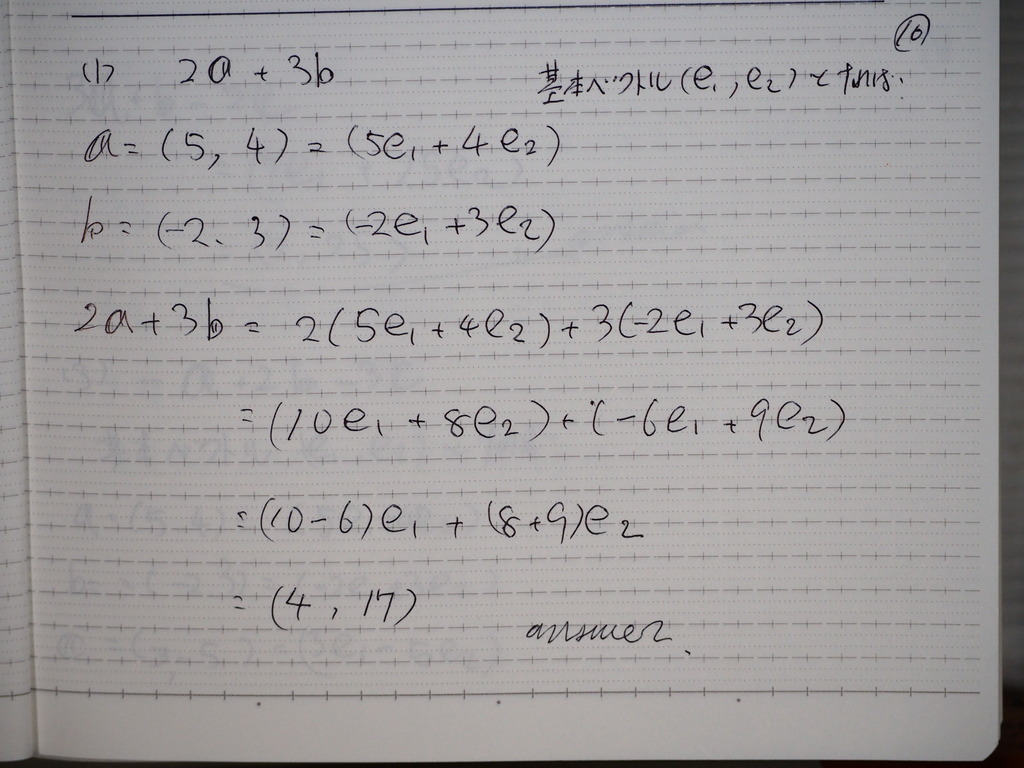 (16)
(1) 2a + 3b 基本ベクトル(e₁, e₂)とすれば.
a = (5, 4) = (5e₁ + 4e₂)
b = (-2, 3) = (-2e₁ + 3e₂)
2a + 3b = 2(5e₁ + 4e₂) + 3(-2e₁ + 3e₂)
= (10e₁ + 8e₂) + (-6e₁ + 9e₂)
= (10 - 6)e₁ + (8 + 9)e₂
= (4, 17)
answer.